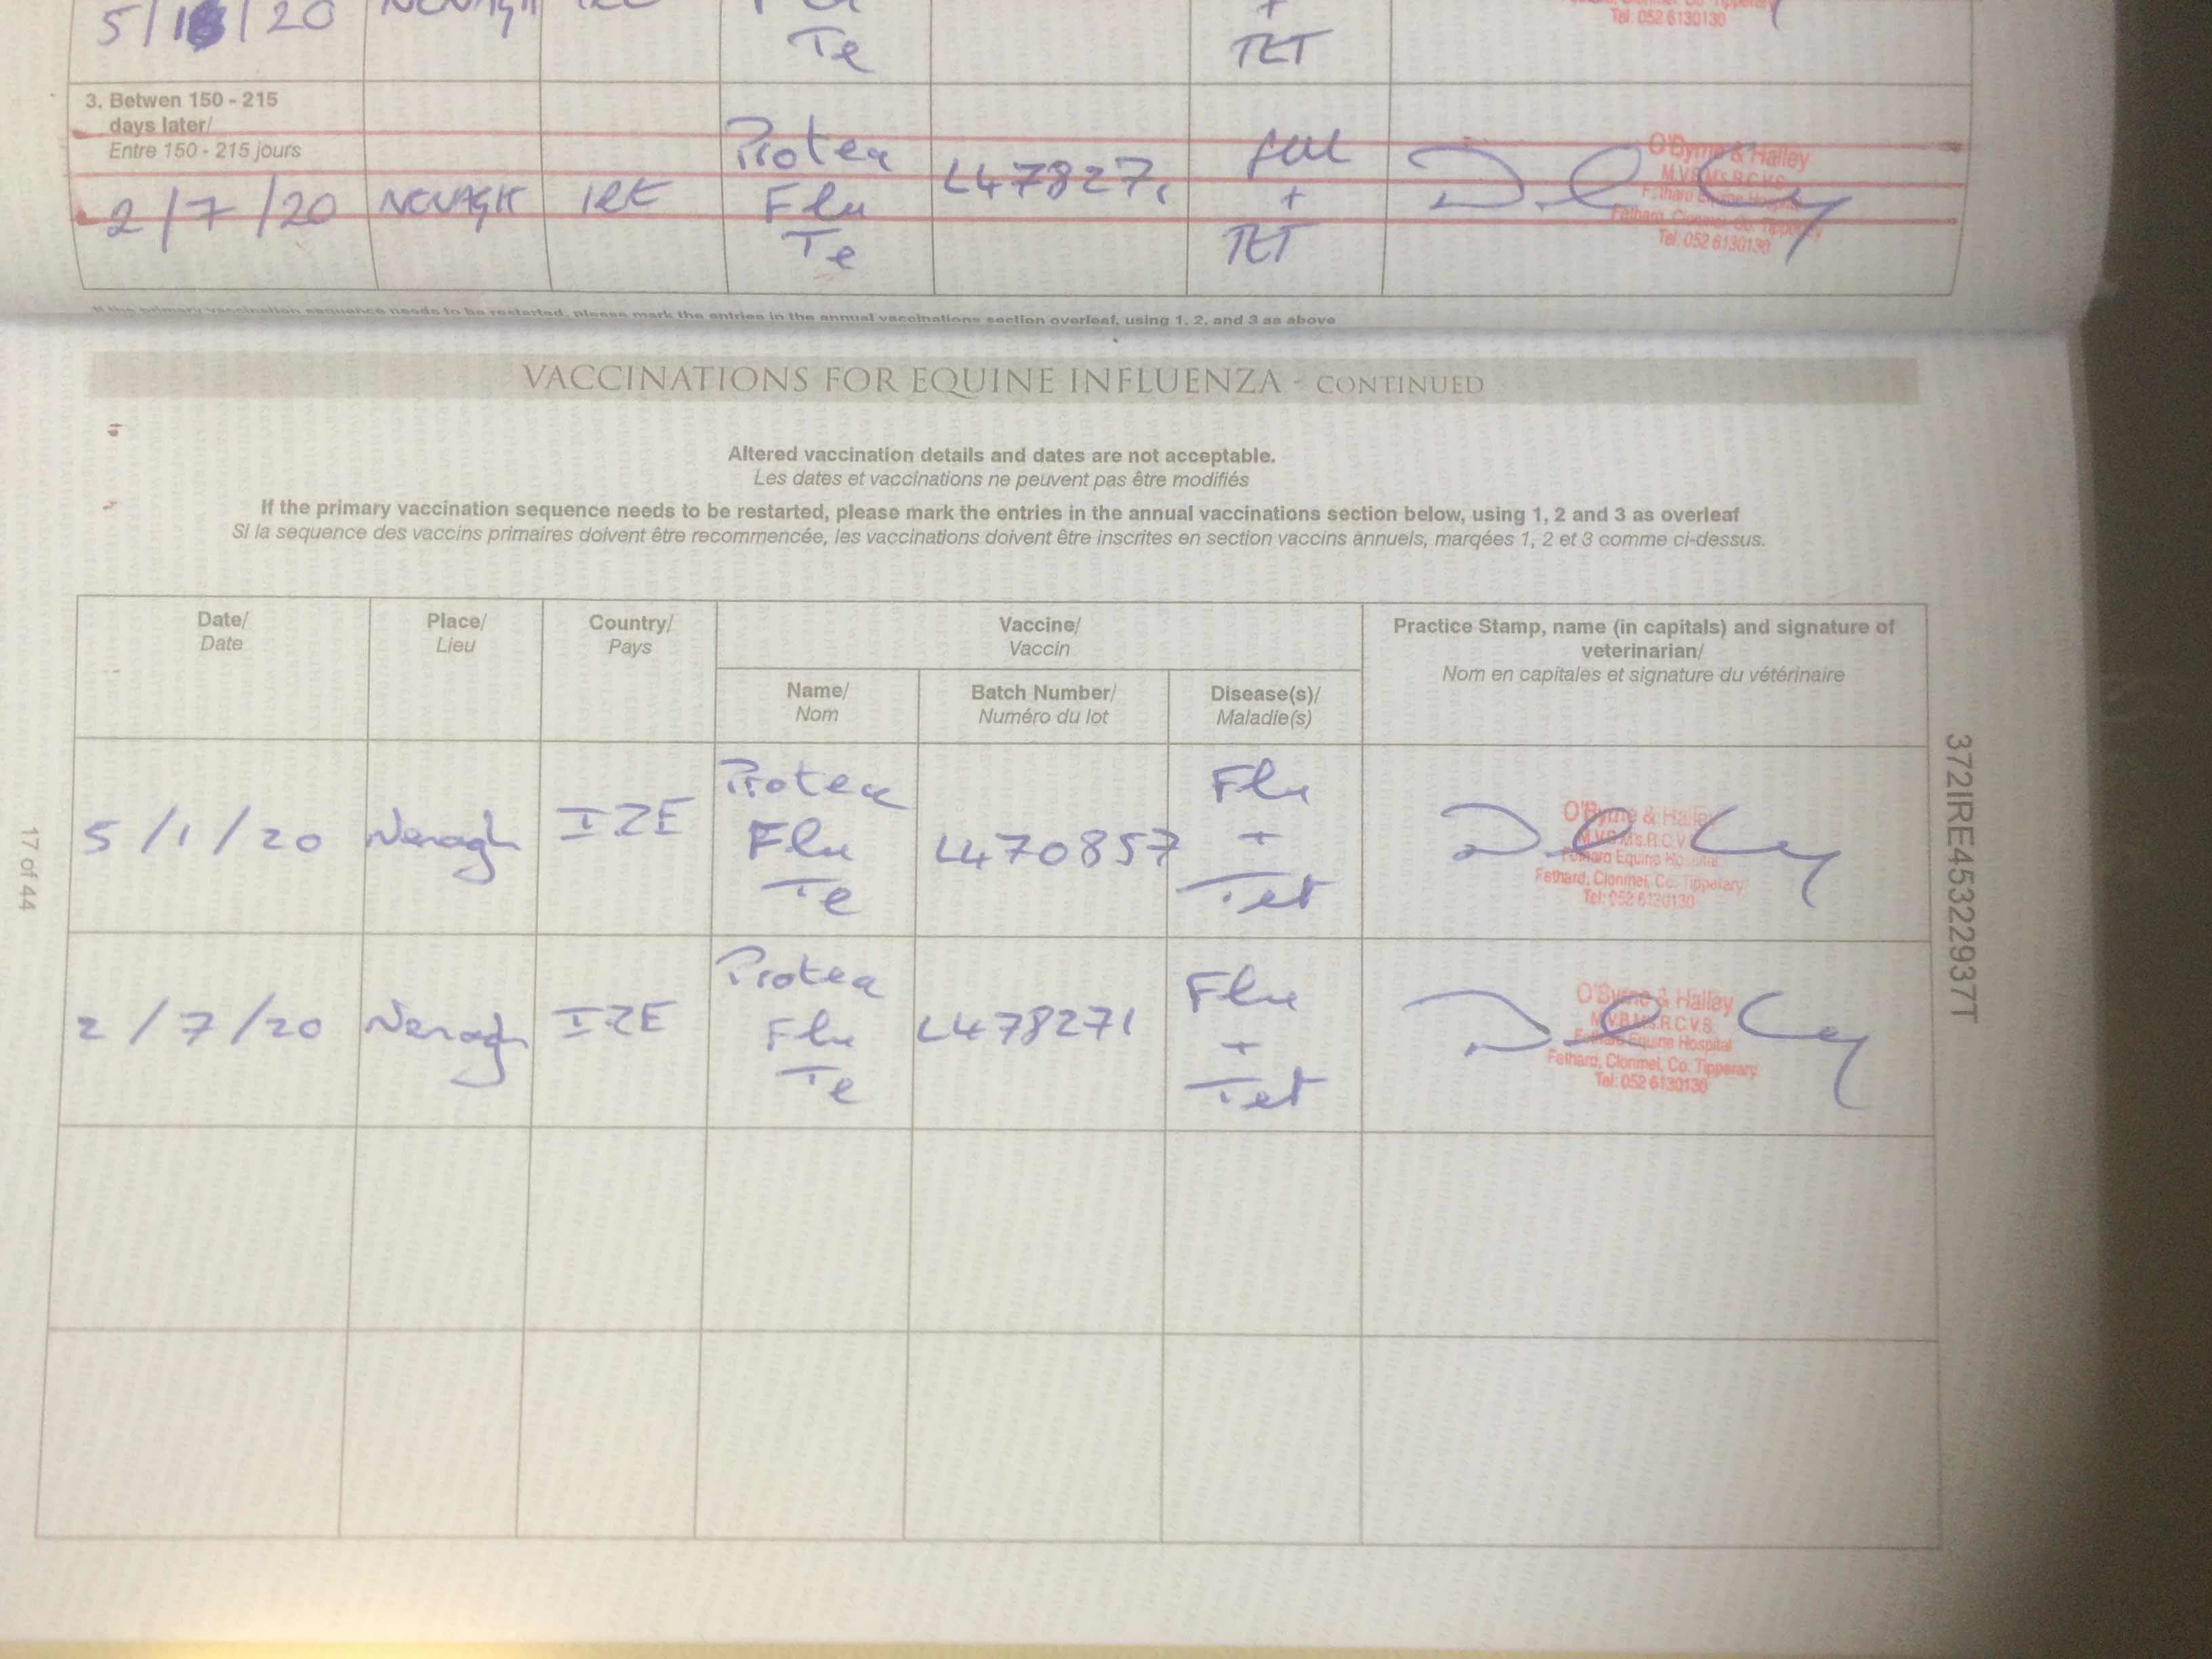 5/1 /20 NENAGH IRE
Te + TET
Tel: 052 6130130
3. Betwen 150 - 215
days later/
Entre 150 - 215 jours
2/7/20 NENAGH IRE Protea Flu Te L478271 FLU + TET
O'Byrne & Halley
M.V.B. M's.R.C.V.S.
Fethard Equine Hospital
Fethard, Clonmel, Co. Tipperary
Tel: 052 6130130
If the primary vaccination sequence needs to be restarted, please mark the entries in the annual vaccinations section overleaf, using 1, 2, and 3 as above
VACCINATIONS FOR EQUINE INFLUENZA - CONTINUED
Altered vaccination details and dates are not acceptable.
Les dates et vaccinations ne peuvent pas être modifiés
If the primary vaccination sequence needs to be restarted, please mark the entries in the annual vaccinations section below, using 1, 2 and 3 as overleaf
Si la sequence des vaccins primaires doivent être recommencée, les vaccinations doivent être inscrites en section vaccins annuels, marqées 1, 2 et 3 comme ci-dessus.
Date/
Date
Place/
Lieu
Country/
Pays
Vaccine/
Vaccin
Name/
Nom
Batch Number/
Numéro du lot
Disease(s)/
Maladie(s)
Practice Stamp, name (in capitals) and signature of
veterinarian/
Nom en capitales et signature du vétérinaire
5/1/20 Nenagh IRE Protea Flu Te L470857 Flu + Tet
O'Byrne & Halley
M.V.B. M's.R.C.V.S.
Fethard Equine Hospital
Fethard, Clonmel, Co. Tipperary
Tel: 052 6130130
2/7/20 Nenagh IRE Protea Flu Te L478271 Flu + Tet
O'Byrne & Halley
M.V.B. M's.R.C.V.S.
Fethard Equine Hospital
Fethard, Clonmel, Co. Tipperary
Tel: 052 6130130
17 of 44
372IRE45322937T